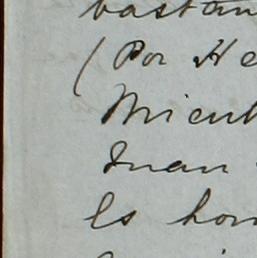 bastan
(Por He
Mient
Juan
Es hom